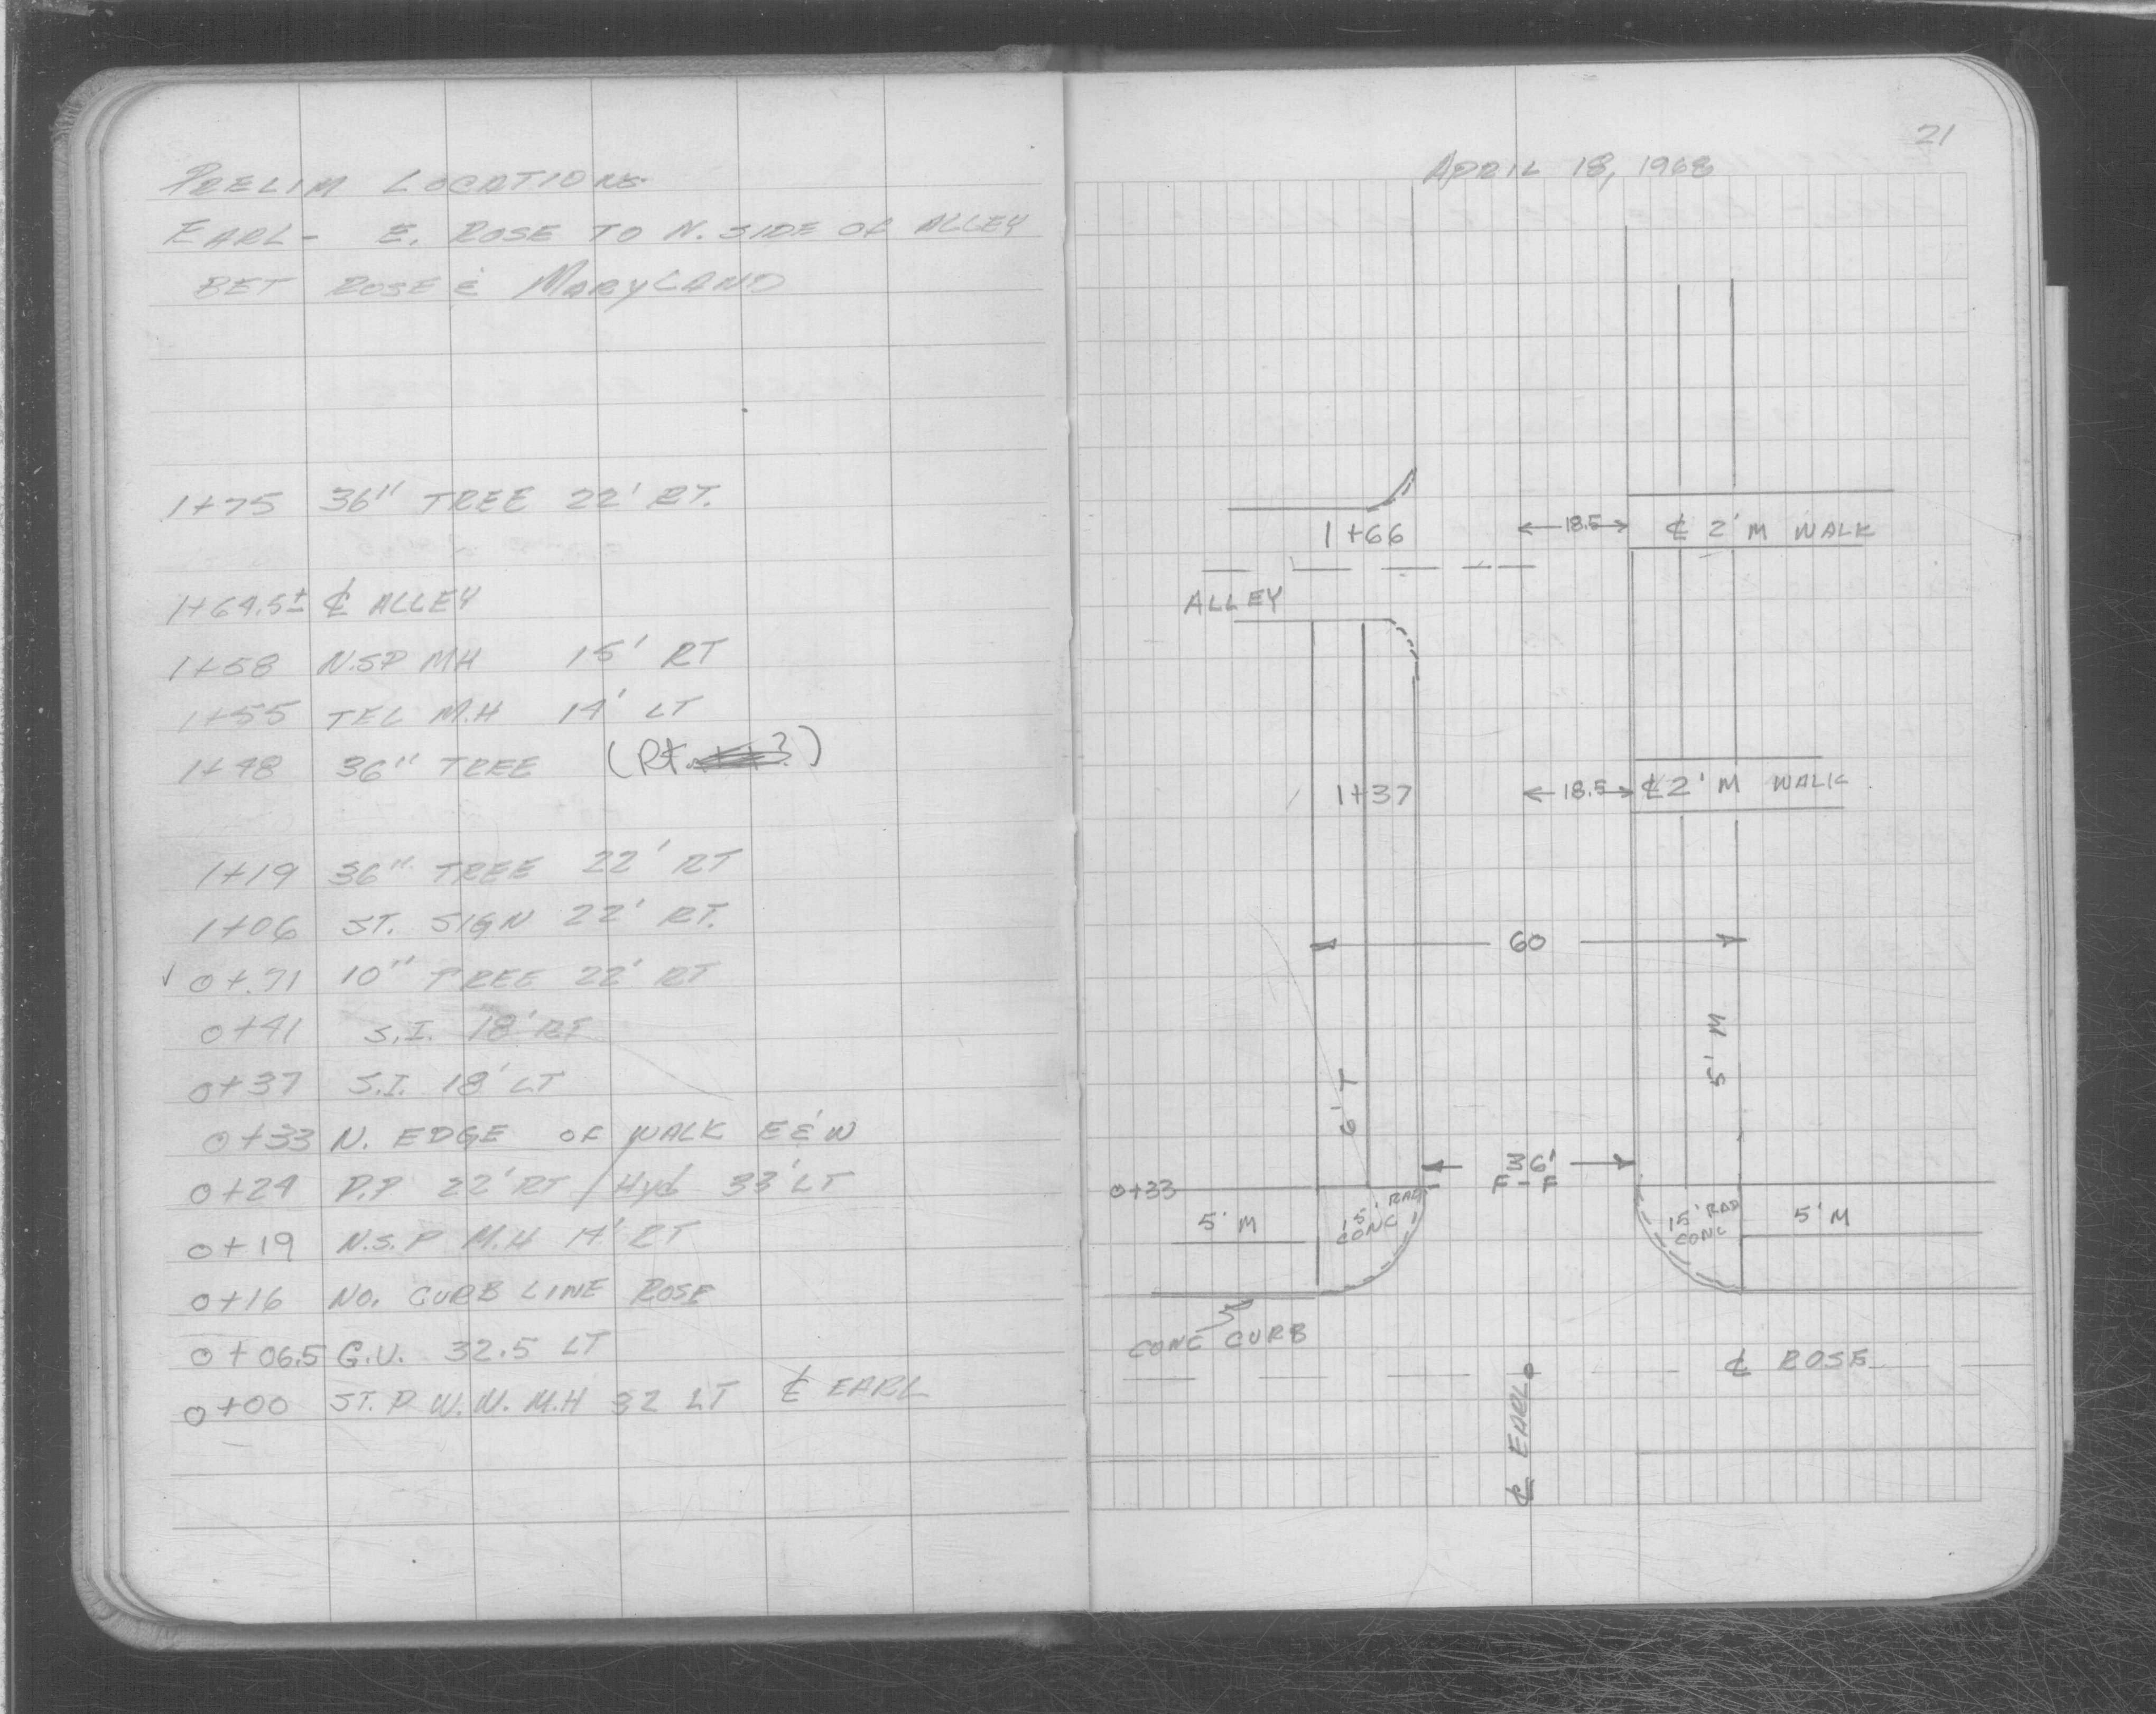 PRELIM LOCATIONS
EARL - E. ROSE TO N. SIDE OF ALLEY
BET ROSE & MARYLAND
1+75 36" TREE 22' RT.
1+64.5± ℄ ALLEY
1+58 N.SP MH 15' RT
1+55 TEL M.H 14' LT
1+48 36" TREE (Rt. )
1+19 36" TREE 22' RT
1+06 ST. SIGN 22' RT.
✓ 0+71 10" TREE 22' RT
0+41 S.I. 18' RT
0+37 S.I. 18' LT
0+33 N. EDGE OF WALK E & W
0+24 P.P 22' RT / Hyd 33' LT
0+19 N.S.P M.H 14' RT
0+16 NO. CURB LINE ROSE
0+06.5 G.V. 32.5 LT
0+00 ST. P W.W. M.H 32 LT ℄ EARL
21
APRIL 18, 1968
1+66 18.5 ℄ 2' M WALK
ALLEY
1+37 18.5 ℄ 2' M WALK
60
5' M
6' T
36'
F-F
0+33
5' M
15' RAD
CONC
15' RAD
CONC
5' M
CONC CURB
℄ ROSE
℄ EARL